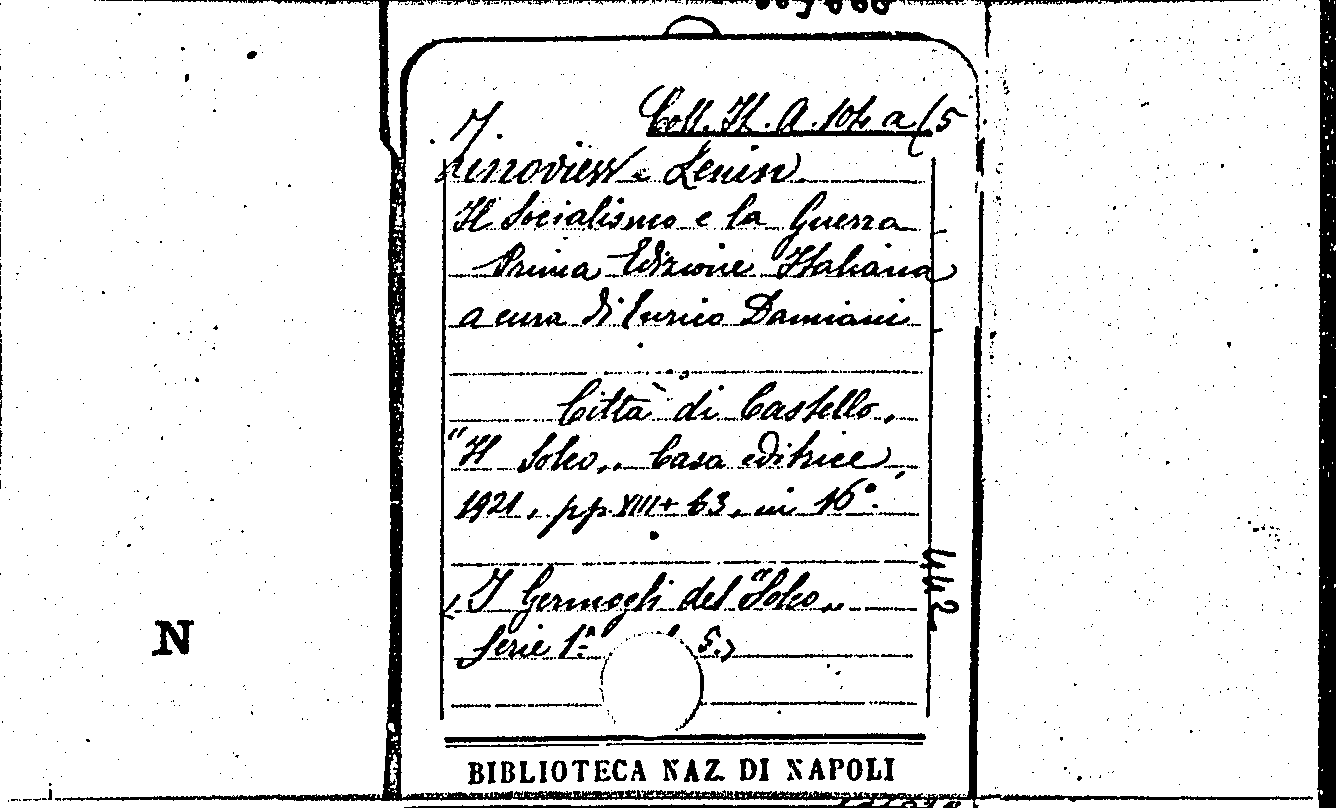 Coll. It. A. 104 a (5
Zinoview e Lenin
Il Socialismo e la Guerra
Prima Edizione Italiana
a cura di Enrico Damiani
Città di Castello,
"Il Solco„ Casa editrice,
1921, pp. VIII + 63, in 16°.
(I Germogli del "Solco„
Serie 1ª 5.)
442
N
BIBLIOTECA NAZ. DI NAPOLI